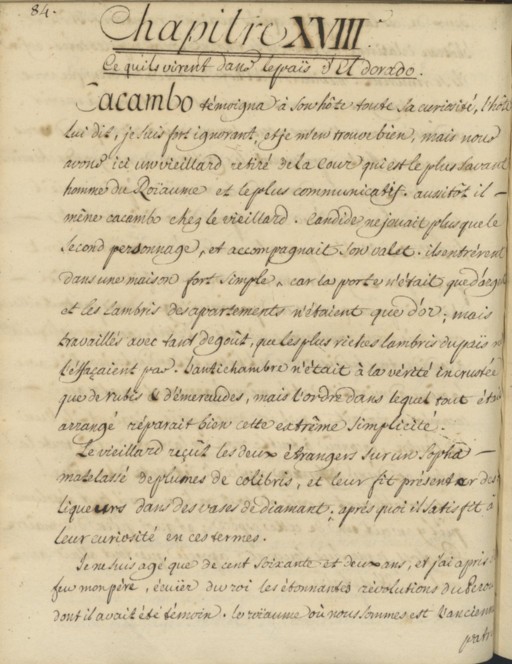 84.
Chapitre XVIII
Ce quils virent dans le païs d'El dorado.
Cacambo témoigna à son hôte toute sa curiosité, l'hôte
lui dit, je suis fort ignorant, et je m'en trouve bien, mais nous
avons ici un vieillard retiré de la Cour qui est le plus savant
homme du Roïaume et le plus communicatif. ausitôt il
mène cacambo chez le vieillard. Candide ne jouait plus que le
second personnage, et accompagnait son valet. ils entrèrent
dans une maison fort simple, car la porte n'était que d'arge
et les lambris des apartements n'étaient que d'or; mais
travaillés avec tant de goût, que les plus riches lambris du païs n
l'éffaçaient pas. L'antichambre n'était à la vérité incrustée
que de rubis & d'émeraudes, mais l'ordre dans lequel tout étai
arrangé réparait bien cette extrême simplicité.
Le vieillard reçut les deux étrangers sur un sopha
matelassé de plumes de colibris, et leur fit présenter des
liqueurs dans des vases de diamant; après quoi il satisfit à
leur curiosité en ces termes.
Je suis agé que de cent soixante et deux ans, et j'ai apris d
feu mon père, écuïer du roi les étonnantes révolutions du Perou
dont il avait été témoin. le roïaume où nous sommes est l'ancienne
patri